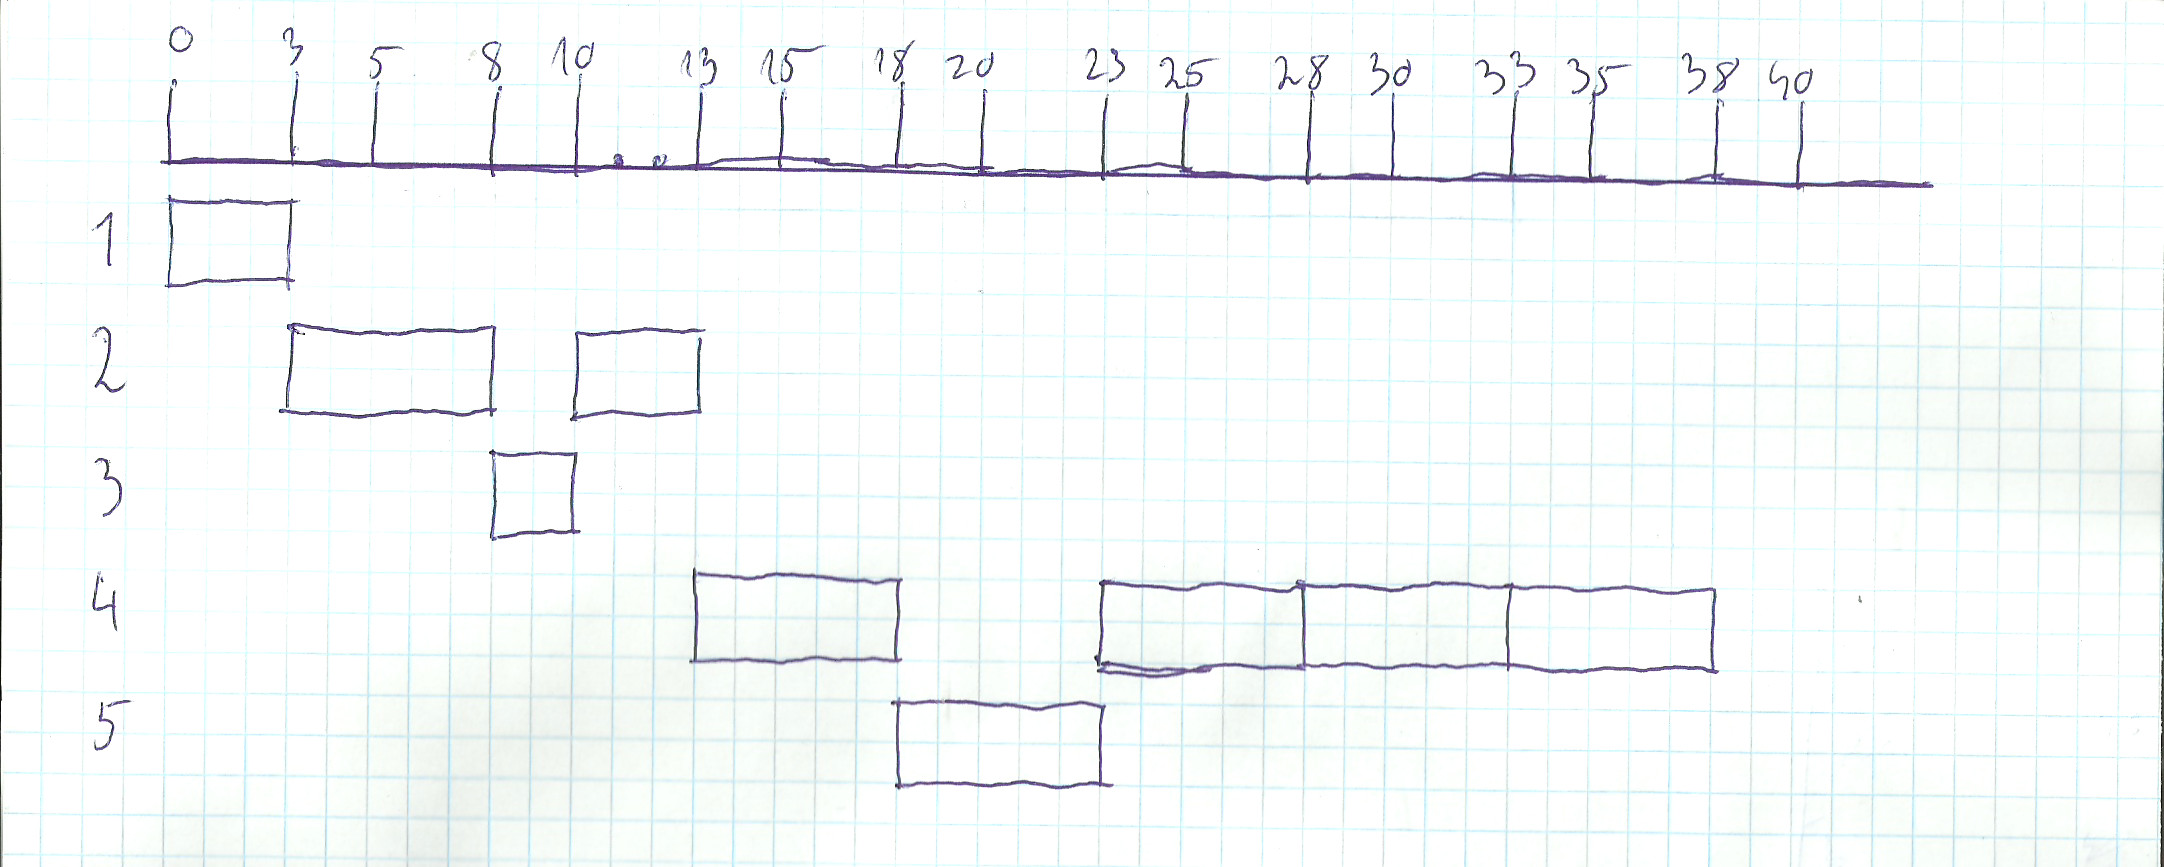 0 3 5 8 10 13 15 18 20 23 25 28 30 33 35 38 40
1
2
3
4
5